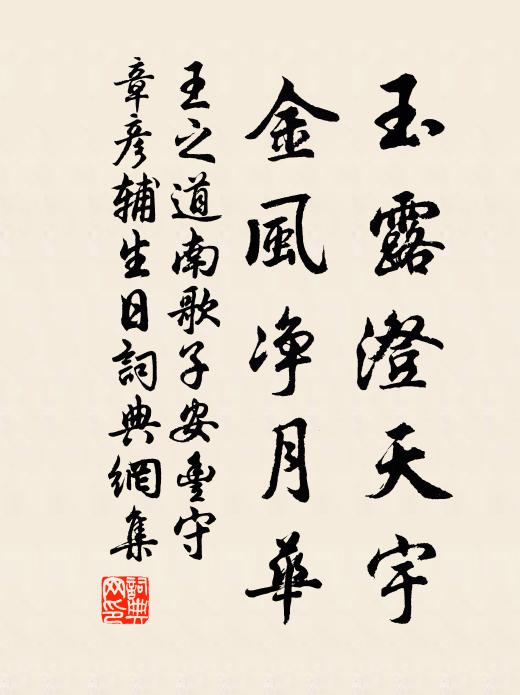 玉露澄天宇
金風净月華
王之道南歌子安豊守
章彦輔生日詞典網集
詞典網印